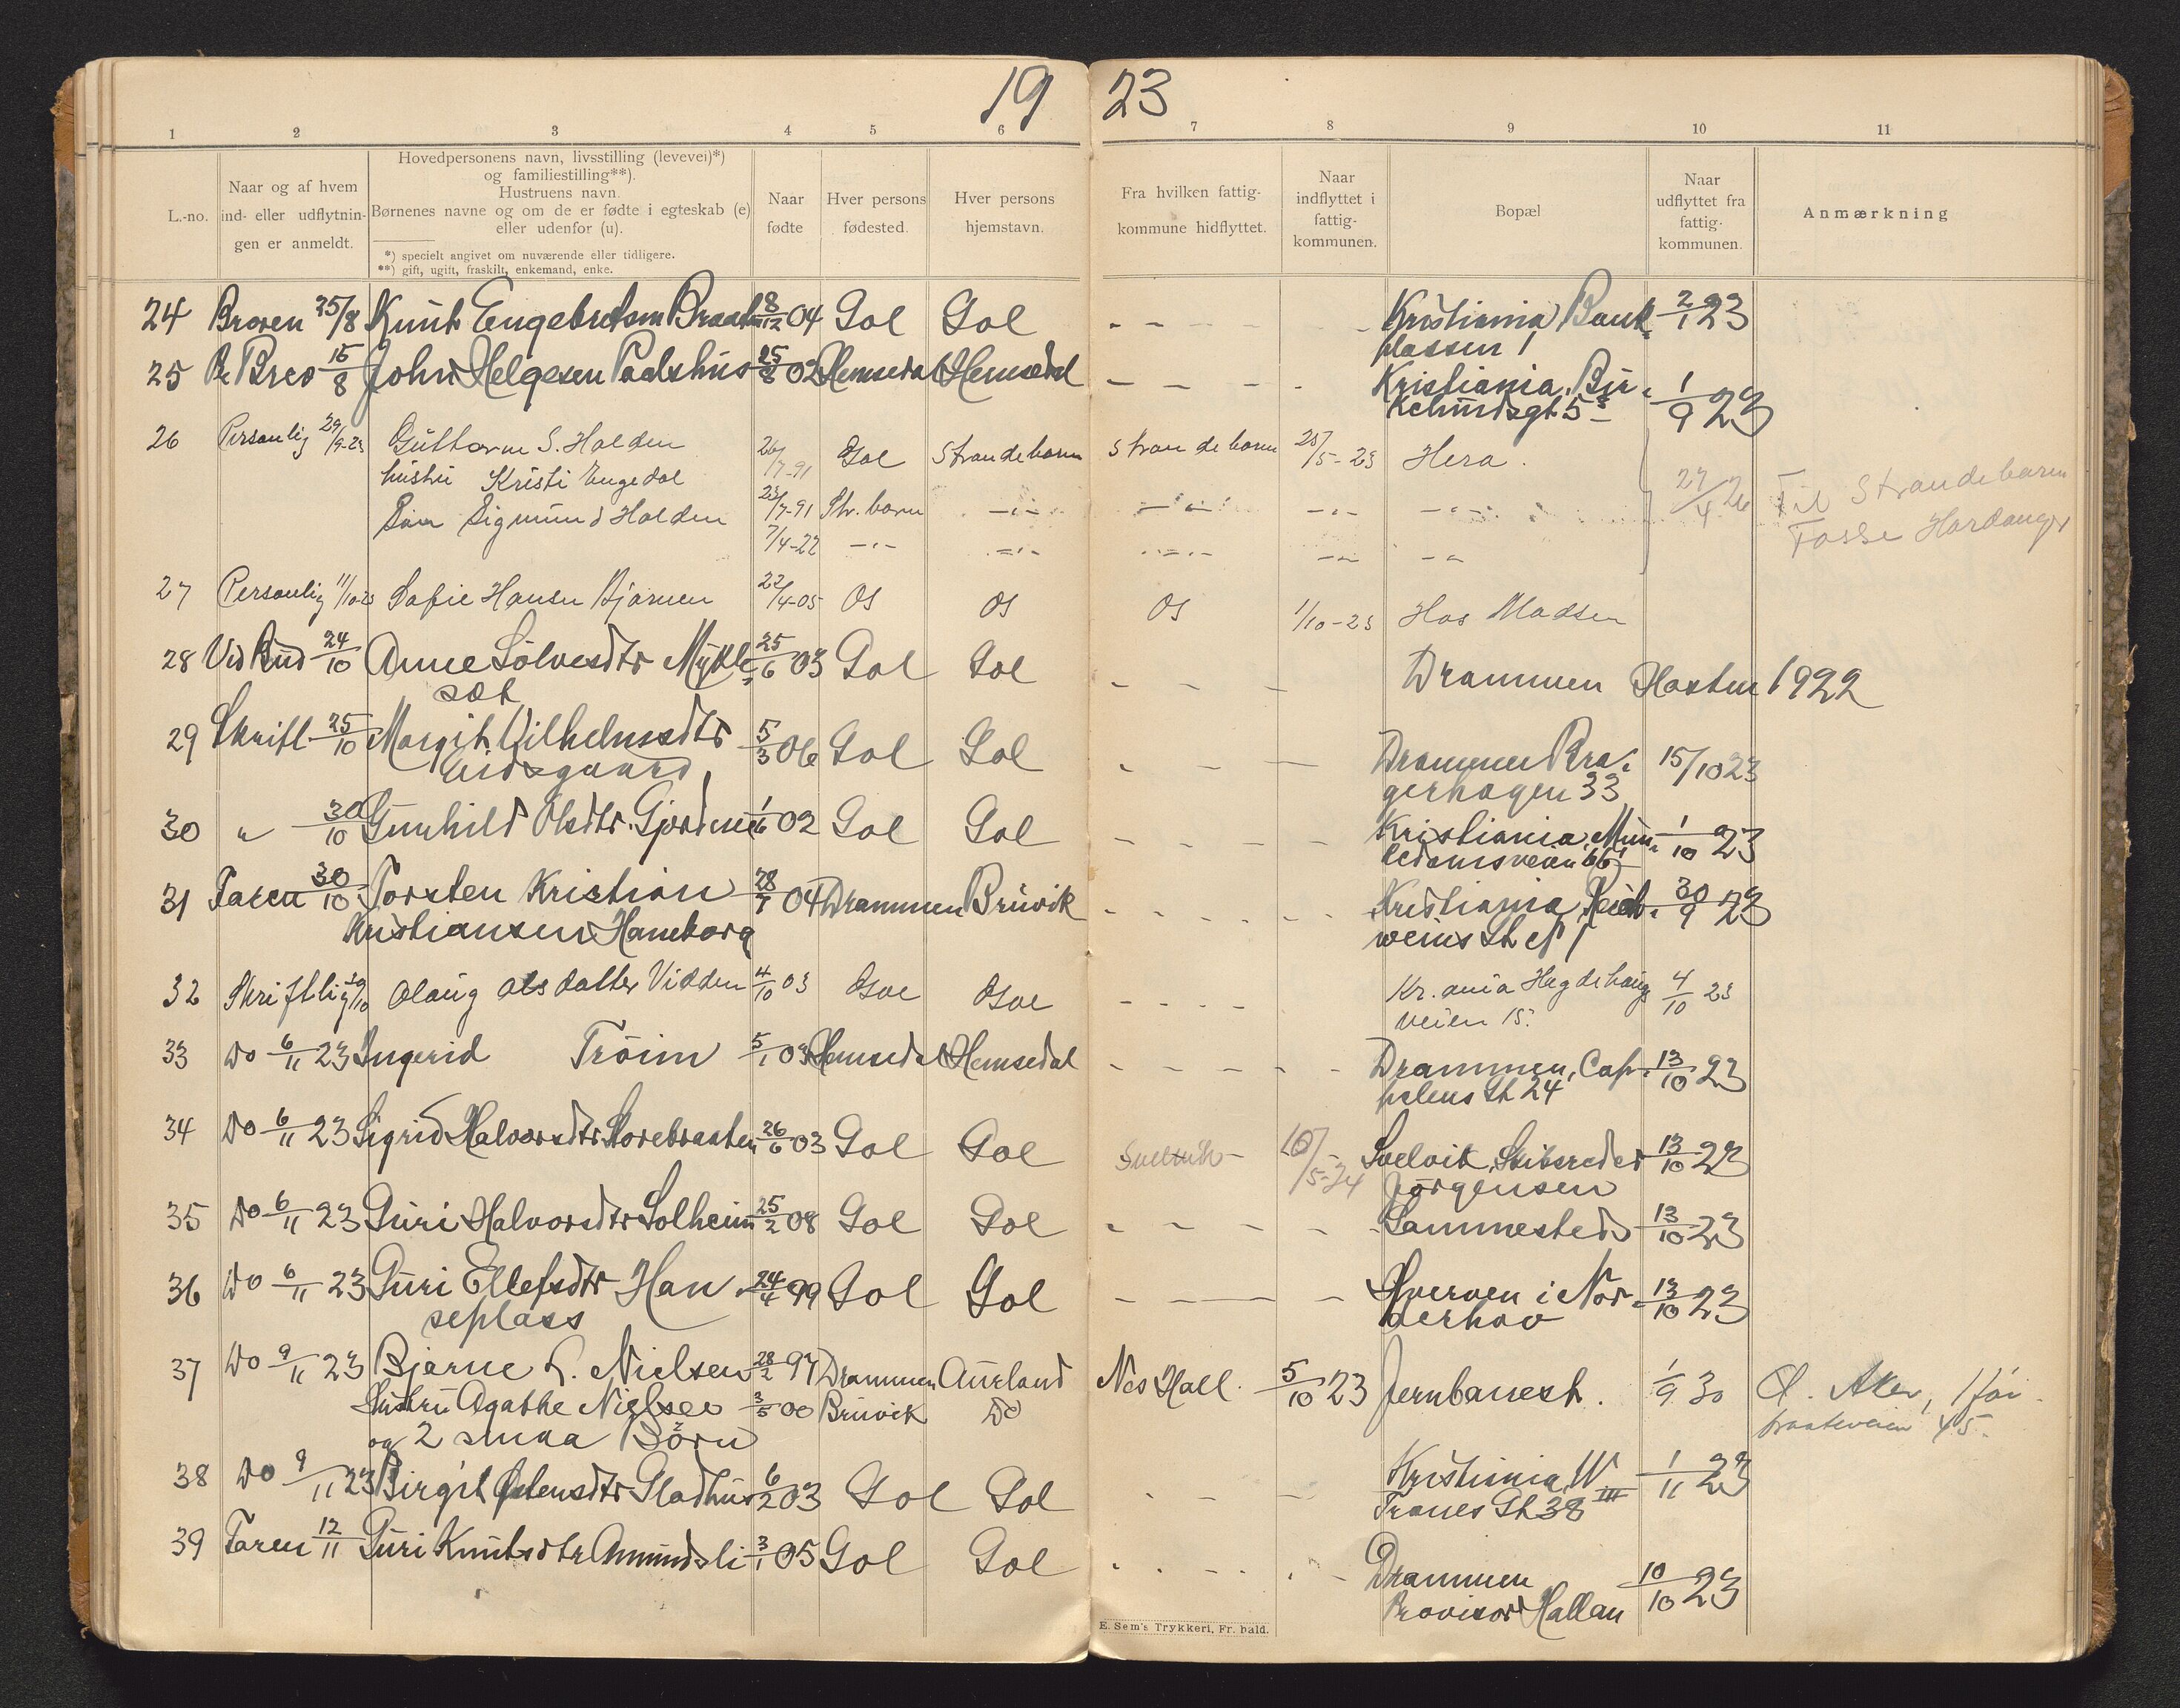 19 23
1 2 3 4 5 6 7 8 9 10 11
L.-no.
Naar og af hvem
ind- eller udflytnin-
gen er anmeldt.
Hovedpersonens navn, livsstilling (levevei)*)
og familiestilling**).
Hustruens navn.
Børnenes navne og om de er fødte i egteskab (e)
eller udenfor (u).
*) specielt angivet om nuværende eller tidligere.
**) gift, ugift, fraskilt, enkemand, enke.
Naar
fødte
Hver persons
fødested.
Hver persons
hjemstavn.
Fra hvilken fattig-
kommune hidflyttet.
Naar
indflyttet i
fattig-
kommunen.
Bopæl
Naar
udflyttet fra
fattig-
kommunen.
Anmærkning
24 Broren 25/8 Knut Engebretsen Braaten 8/12 04 Gol Gol - - - Kristiania Bank- 2/1 23
plassen 1
25 Pr Brev 15/8 John Helgesen Paalshus 25/8 02 Hemsedal Hemsedal - - - - Kristiania, Bir- 1/9 23
kelundsgt 5
26 Personlig 29/9-23 Guttorm S. Halden 26/7-91 Gol Strandebarm Strandebarm 25/5-23 Hera.
hustru Kristi Engedal 23/7-91 Str. barm -"- -"- -"- -"- 27/4 26 Til Strandebarm
Søn Sigmund Halden 7/4-22 -"- -"- -"- -"- -"- Fosse Hardanger
27 Personlig 11/10-23 Sofie Hansen Bjørnen 22/4-05 Os Os Os 1/10-23 Hos Madsen
28 Vid Bud 24/10 Anne Sølvesdtr Mykle- 25/6 03 Gol Gol - - - Drammen Høsten 1922
sæt
29 Skriftl. 25/10 Margit Vilhelmsdtr 5/3 06 Gol Gol - - - Drammen Bra- 15/10 23
Eidsgaard gerhagen 33
30 " 30/10 Gunhild Olsdtr. Gjordene 1/6 02 Gol Gol - - - - Kristiania, Mun- 1/10 23
kedamsveien 66
31 Faren 30/10 Torsten Kristian 28/7 04 Drammen Bruvik - - - - Kristiania, 30/9 23
Kristiansen Haneborg weins Gt No 1
32 Skriftlig 30/10 Olaug Olsdatter Vidden 4/10 03 Gol Gol - - - - Kr.ania Hegdehaugs 4/10 23
veien 15.
33 Do 6/11 23 Ingerid Trøim 5/1 03 Hemsedal Hemsedal - - - - - Drammen, Cap- 13/10 23
pelens Gt 24
34 Do 6/11 23 Sigrid Halvorsdtr Storebraaten 26/6 03 Gol Gol Svelvik - 10/5-24 Svelvik, Skibsreder 13/10 23
Jørgensen
35 Do 6/11 23 Guri Halvorsdtr Solheim 25/2 08 Gol Gol - - - - Sammesteds 13/10 23
36 Do 6/11 23 Guri Ellefsdtr Han- 24/4 99 Gol Gol - - - Hverven i Nor- 13/10 23
seplass derhov
37 Do 9/11 23 Bjarne L. Nielsen 28/2 97 Drammen Aurland Nes Hall. 5/10 23 Jernbanest. 1/9 30 Ø. Aker,
Hustru Agathe Nielsen 3/5 00 Bruvik Do 45.
og 2 smaa Børn
38 Do 9/11 23 Birgit Østensdtr Gladhus 6/2 03 Gol Gol - - - Kristiania, W 1/11 23
Tranes Gt 38 III
39 Faren 12/11 Guri Knutsdtr Amundsli 3/1 05 Gol Gol - - - - Drammen 10/10 23
Provisor Hallan
E. Sem's Trykkeri, Fr. hald.